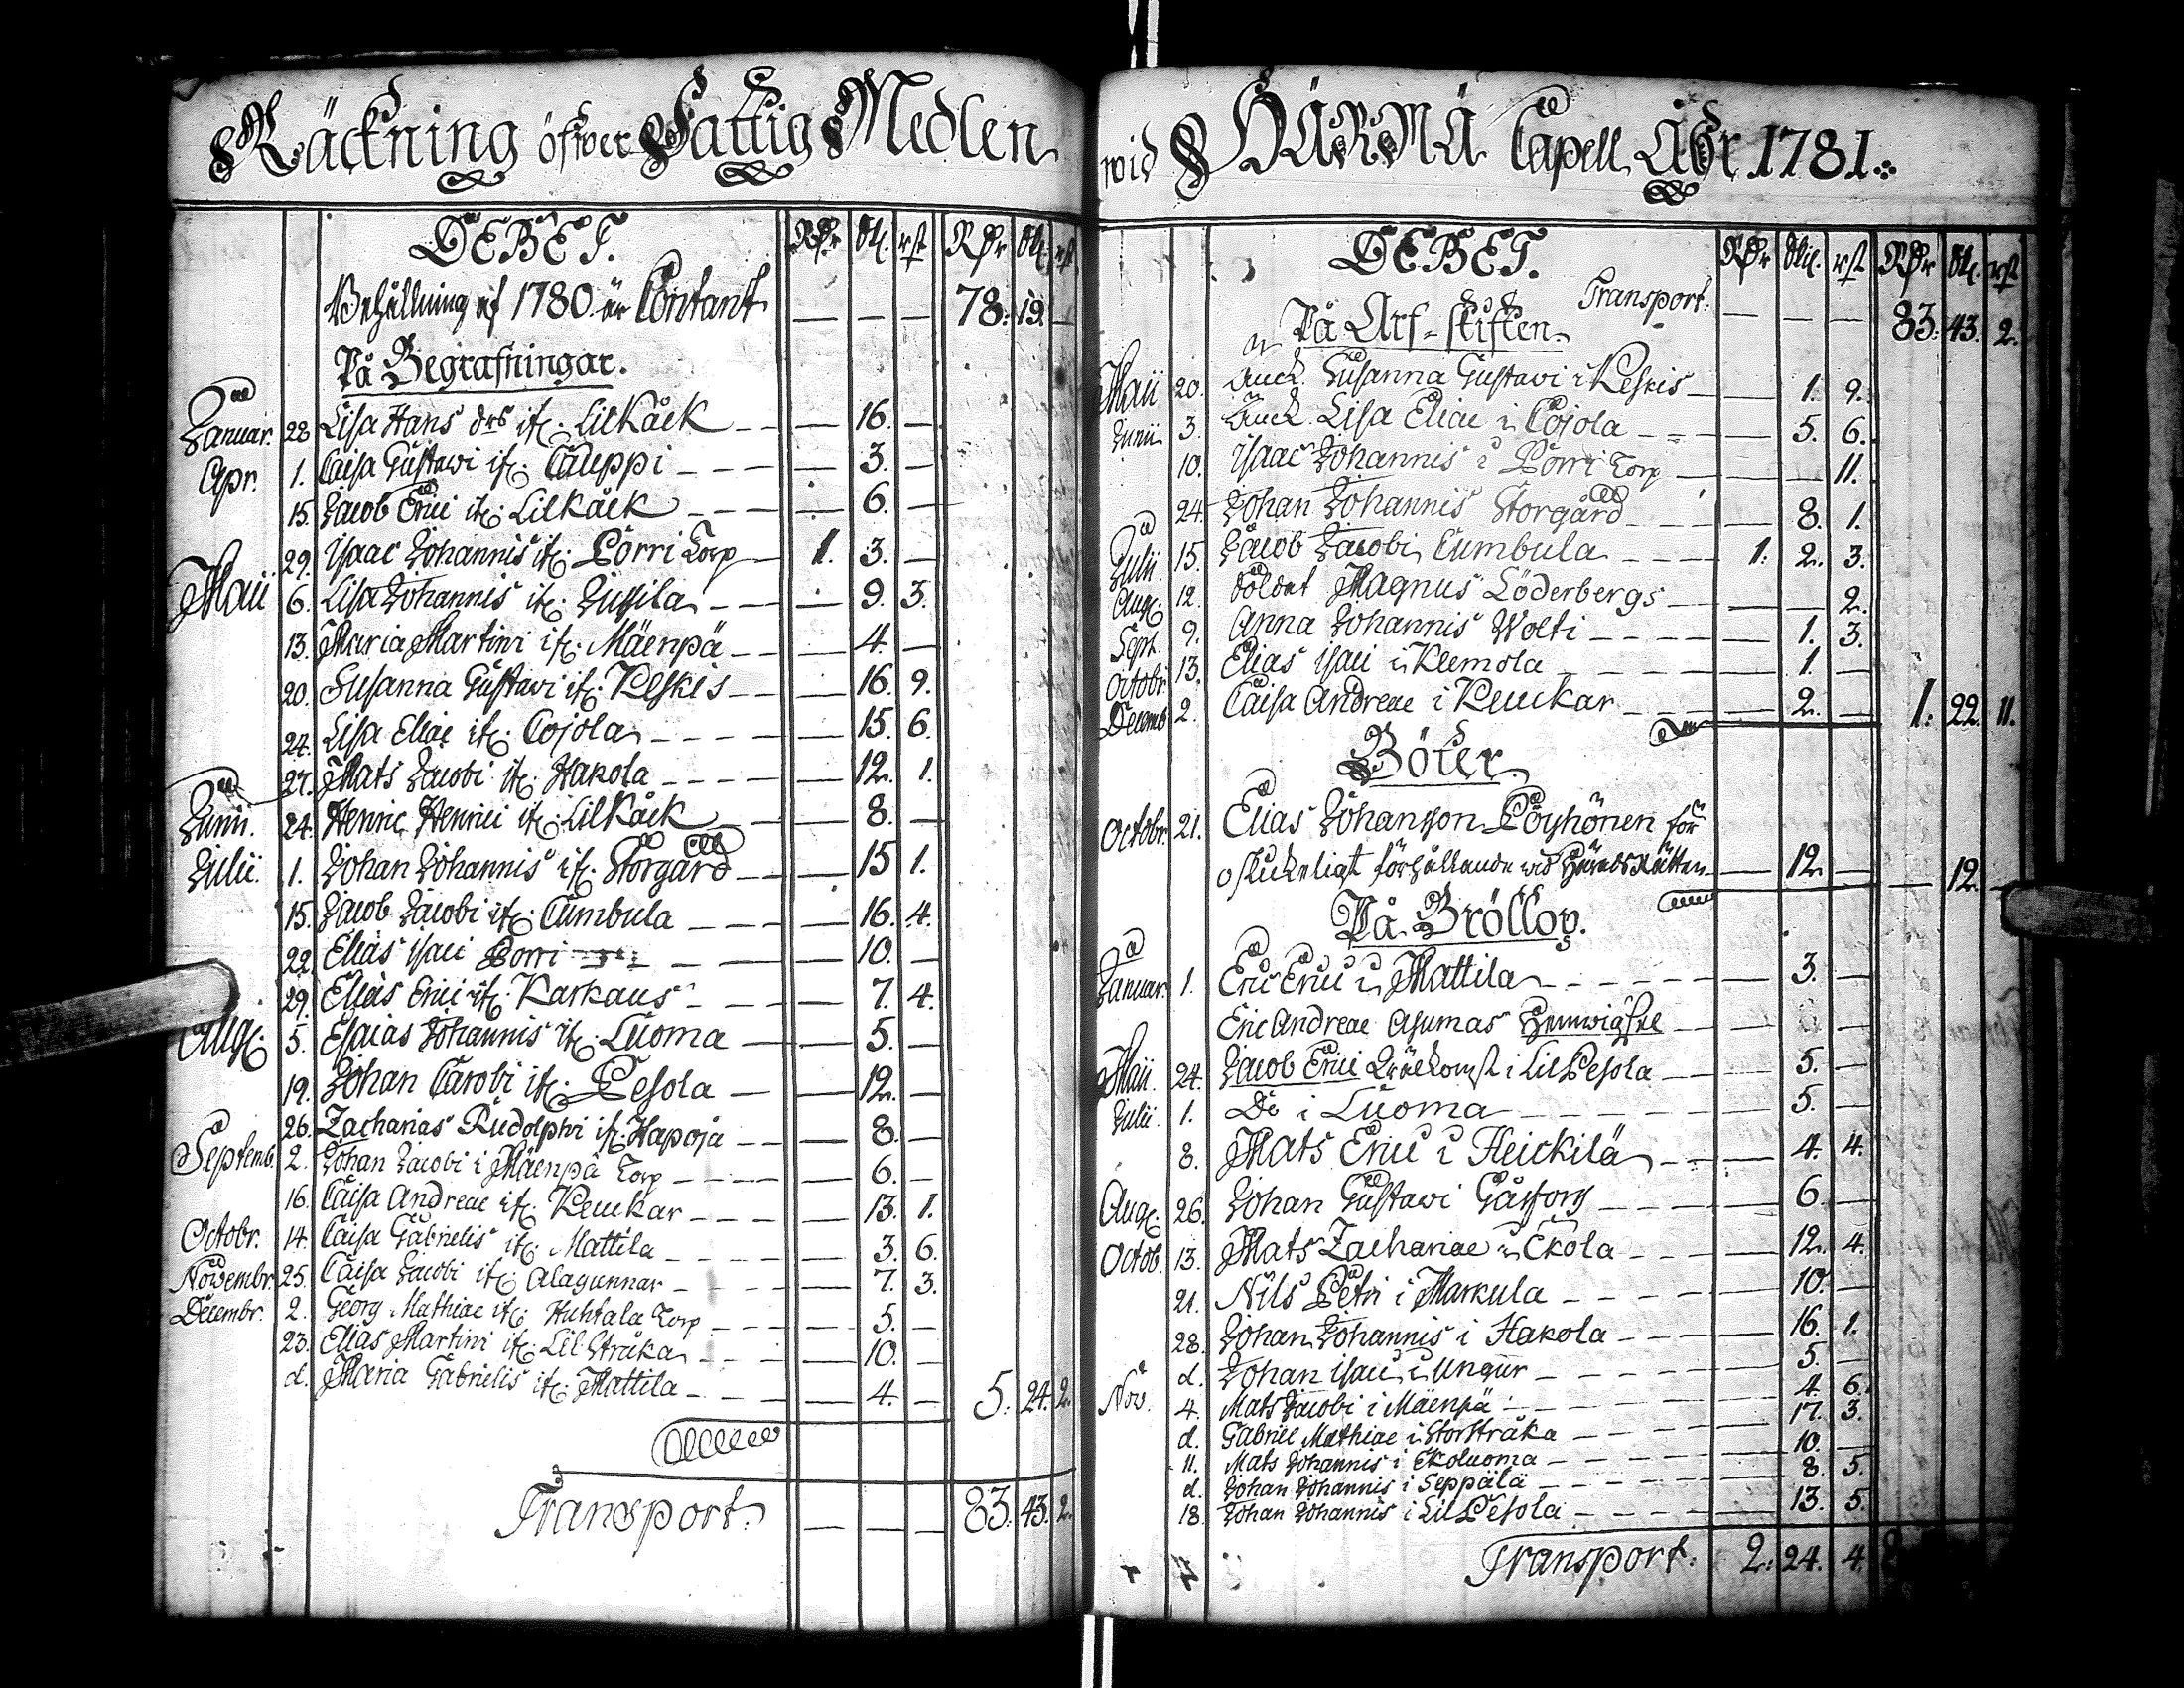 Räckning öfwer Fattig Medlen
DEBET. RDr ßl. rst RDr ßl. rst
Behållning af 1780 är Contant — — — 78: 19. —
På Begrafningar.
Januar. 28 Lisa Hans drs if. LilKåck — 16. —
Apr. 1. Caisa Gustawi if. Cauppi — 3. —
15. Jacob Erici if. Lilkåck — 6. —
29. Isaac Johannis if. Pörri Torp 1. 3. —
Maii 6. Lisa Johannis if. — 9. 3.
13. Maria Martini if. Mäenpä — 4. —
20. Susanna Gustavi if. Keskis — 16. 9.
24. Lisa Eliae if. Cojola — 15. 6.
27. Mats Jacobi if. Hakola — 12. 1.
Junii. 24. Henric Henrici if. LilKåck — 8. —
Julii. 1. Johan Johannis if. Storgård — 15 1.
15. Jacob Jacobi if. Cumbula — 16. 4.
22. Elias Isaci Porri — 10. —
29. Elias Erici if. Karkaus — 7. 4.
Aug. 5. Esaias Johannis if. Luoma — 5. —
19. Johan Carobi if. Pesola — 12. —
26. Zacharias Rudolphi if. Hapoja — 8. —
Septemb. 2. Johan Jacobi i Mäenpä Torp — 6. —
16. Caisa Andreae if. Keuckar — 13. 1.
Octobr. 14. Caisa Gabrielis if. Mattila — 3. 6.
Novembr. 25. Caisa Jacobi if. Alagunnar — 7. 3.
Decembr. 2. Georg Mathiae if. Huhtala Torp — 5. —
23. Elias Martini if. Lil Stråka — 10. —
d. Maria Gabrielis if. Mattila — 4. — 5. 24. 2.
Transport. — — — 83. 43. 2.
wid HÄRMÄ Capell Åhr 1781.
DEBET. RDr ßl. rst RDr ßl. rst
Transport: — — — 83: 43. 2.
På Arf-skiften.
Maii 20. Susanna Gustavi i Keskis — 1. 9.
Junii 3. Lisa Eliae i Cojola — 5. 6.
10. Isaac Johannis i Pörri Torp — — 11.
24. Johan Johannis Storgård — 8. 1.
Julii 15. Jacob Jacobi Cumbula 1: 2. 3.
Aug. 12. Soldat Magnus Söderbergs — — 2.
Sept. 9. Anna Johannis Wolti — 1. 3.
Octobr 13. Elias Isaci i Klemola — 1. —
Decemb 2. Caisa Andreae i Keuckar — 2. — 1: 22. 11.
Böter.
Octobr. 21. Elias Johansson Pöyhönen för
oskickeligt förhållande wid HäradsRätten — 12. — — 12. —
På Bröllop.
Januar. 1. Eric Erici i Mattila — 3. —
Eric Andreae Asumas —
Maii. 24. Jacob Erici i LilPesola — 5. —
Julii. 1. Do i Luoma — 5. —
8. Mats Erici i Heickilä — 4. 4.
Aug. 26. Johan Gustawi — 6. —
Octob. 13. Mats Zachariae i Ekola — 12. 4.
21. Nils Petri i Markula — 10. —
28. Johan Johannis i Hakola — 16. 1.
d. Johan Isaci i Ungur — 5. —
Nov. 4. Mats Jacobi i Mäenpä — 4. 6.
d. Gabriel Mathiae i Storstråka — 17. 3.
11. Mats Johannis i Ekoluoma — 10. —
d. Johan Johannis i Seppälä — 8. 5.
18. Johan Johannis i LilPesola — 13. 5.
Transport: 2: 24. 4.